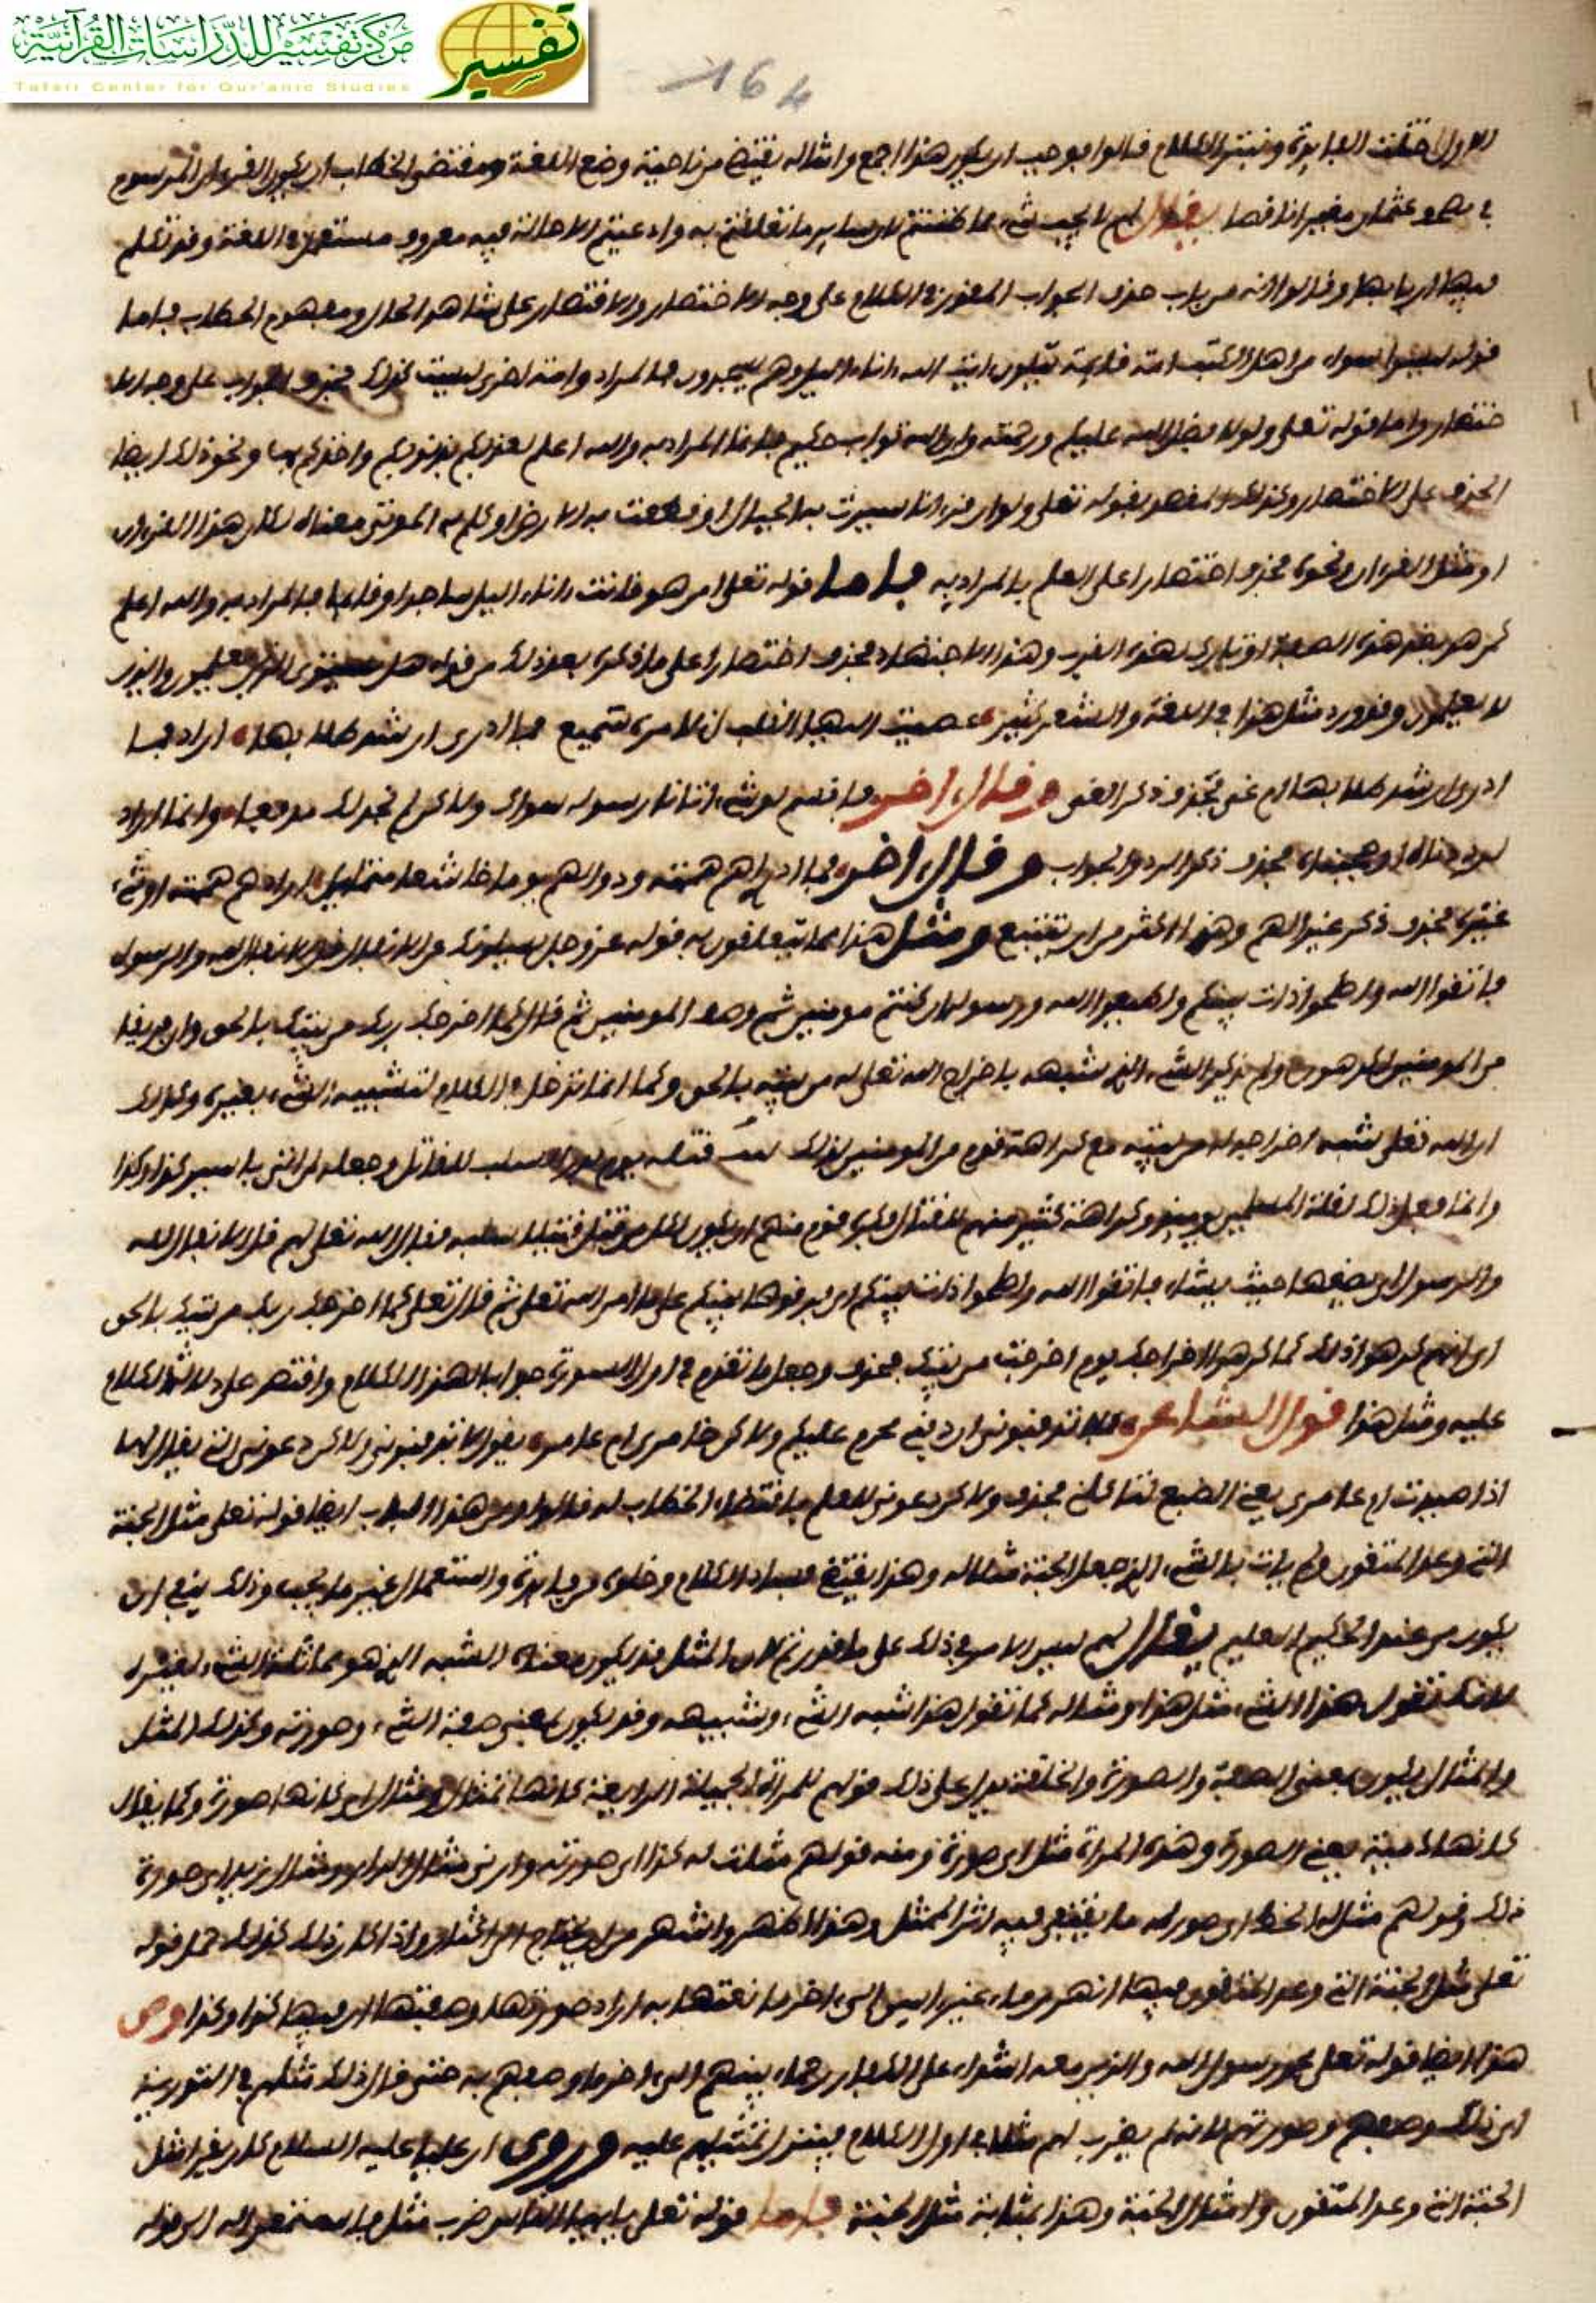 مركز تفسير للدراسات القرآنية
تفسير
Tafsir Center for Qur'anic Studies
164
الفايدة وفسد الكلام قالوا فوجب ان يكون هذا اجمع وامثاله يقتضي من ناحية وضع اللغة ومقتضى الخطاب ان يكون القرءان المرسوم
في مصحف عثمان مغيرا ناقصا يقال لهم لا يجب شيء مما ظننتم لان ساير ما تعلقتم به وادعيتم الاحالة فيه معروف مستعمل في اللغة وقد تكلم
فيها اربابها وقالوا انه من باب حذف الجواب المقدر في الكلام على وجه الاختصار والاقتصار على شاهد الحال ومفهوم الخطاب فاما
قوله ليسوا سواء من اهل الكتب امة قايمة يتلون ءايت الله ءاناء اليل وهم يسجدون فالمراد وامة اخرى ليست كذلك فحذف الجواب على وجه الا
ختصار واما قوله تعلى ولولا فضل الله عليكم ورحمته وان الله تواب حكيم فانما المراد به والله اعلم لعذبكم بذنوبكم واخذكم بها ونحو ذلك ايضا
الحذف على الاختصار وكذلك القصد بقوله تعلى ولو ان قرءانا سيرت به الجبال او قطعت به الارض او كلم به الموتى معناه لكان هذا القرءان
او مثل القرءان ونحوه فحذف اختصارا على العلم بالمراد به فاما قوله تعلى امن هو قانت ءاناء اليل ساجدا وقايما فالمراد به والله اعلم
كمن هو بغير هذه الصفة او تارك لهذه القرب وهذا الاجتهاد فحذف اختصارا على ما ذكره بعد ذلك من قوله هل يستوي الذين يعلمون والذين
لا يعلمون وقد ورد مثل هذا في اللغة والشعر كثير عصيت اليها القلب اني لامره سميع فما ادري ارشد طلابها اراد فما
ادري ارشد طلابها ام غي فحذف ذكر الغي وقال ءاخر فاقسم لو شيء اتانا رسوله سواك ولكن لم نجد لك مدفعا وانما اراد
فحذف ذكر الرد والجواب وقال ءاخر فما ادري اهم هممته
غيره فحذف ذكر غير الهم وهذا اكثر من ان يتتبع ومثل هذا مما يتعلقون به قوله عز وجل يسئلونك عن الانفال قل الانفال لله والرسول
فاتقوا الله واصلحوا ذات بينكم واطيعوا الله ورسوله ان كنتم مومنين ثم وصف المومنين ثم قال كما اخرجك ربك من بيتك بالحق وان فريقا
من المومنين لكرهون ولم يذكر الشيء الذي شبهه باخراج الله تعلى له من بيته بالحق وكما انما تدخل في الكلام لتشبيه الشيء بغيره وكذلك
ان الله تعلى شبه اخراجه له من بيته مع كراهة قوم من المومنين لذلك قتاله يوم بدر السلب للقاتل وجعله لمن اتى باسير كذا وكذا
وانما فعل ذلك لقلة المسلمين يوميذ وكراهة كثير منهم للقتال فكره قوم منهم ان يكون لكل من قتل قتيلا سلبه فقال الله تعلى لهم قل الانفال لله
والرسول ان يضعها حيث يشاء فاتقوا الله واصلحوا ذات بينكم اي فرقوها بينكم على ما امر الله تعلى ثم قال تعلى كما اخرجك ربك من بيتك بالحق
اي انهم كرهوا ذلك كما كرهوا اخراجك يوم اخرجت من بيتك فحذف وجعل ما تقدم في اول السورة جوابا لهذا الكلام واقتصر على دلالة الكلام
عليه ومثل هذا قول الشاعر فلا تدفنوني ان دفني محرم عليكم ولكن خامري ام عامر يقول لا تدفنوني ولكن دعوني التي يقال لها
اذا صيدت ام عامر يعني الضبع لتاكلني فحذف ولكن دعوني للعلم باقتضاء الخطاب له قالوا ومن هذا الباب ايضا قوله تعلى مثل الجنة
التي وعد المتقون ولم يات بالشيء الذي جعل الجنة مثلا له وهذا يقتضي فساد الكلام وخلوه من فايدة واستعمال غير ما يجب وذلك ينفي ان
يكون من عند الحكيم العليم يقال لهم ليس الامر في ذلك على ما قدرتم لان المثل قد يكون معناه الشبه الذي هو مماثلة الشيء لغيره
لانك تقول هذا الشيء مثل هذا ومثاله كما تقول هذا شبه الشيء وشبيهه وقد يكون بمعنى صفة الشيء وصورته وكذلك المثل
والمثال يكون بمعنى الصفة والصورة والخلقة يدل على ذلك قولهم للمراة الجميلة الرايعة كانها تمثال ومثال اي كانها صورة وكما يقال
كانها دمية يعني الصورة وهذه المراة مثل اي صورة ومنه قولهم مثلت له كذا اي صورته وارني مثال الدار ومثال زيد اي صورة
ذلك وقولهم مثال الخط اي صور له ما يقتفي فيه اثر الممثل وهذا اظهر واشهر من ان يحتاج الى اكثار واذا كان ذلك كذلك حمل قوله
تعلى مثل الجنة التي وعد المتقون فيها انهر من ماء غير ءاسن الى ءاخر ما نعتها به اراد صورتها وصفتها ان فيها كذا وكذا ومن
هذا ايضا قوله تعلى محمد رسول الله والذين معه اشداء على الكفار رحماء بينهم الى ءاخر ما وصفهم به حتى قال ذلك مثلهم في التورية
اي ذلك وصفهم وصورتهم لانه لم يضرب لهم مثلا في اول الكلام فينزل تمثيلهم عليه وروي ان عليا عليه السلام كان يقرا مثل
الجنة التي وعد المتقون وامثال الجنة وهذا بمثابة مثل الجنة فاما قوله تعلى يايها الناس ضرب مثل فاستمعوا له الى قوله